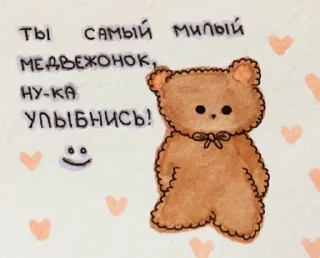 ТЫ САМЫЙ МИЛЫЙ
МЕДВЕЖОНОК,
НУ-КА
УЛЫБНИСЬ!